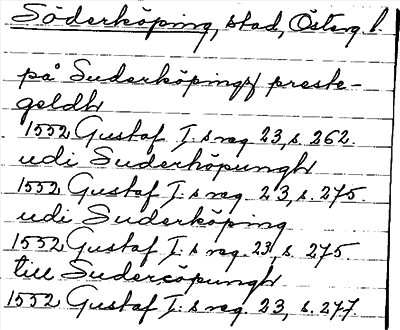 Söderköping, stad, Österg. l.
på Suderköpings preste-
geldh
1552 Gustaf I:s reg. 23, s. 262.
udi Suderköpungh
1552 Gustaf I:s reg. 23, s. 275.
udi Suderköping
1552 Gustaf I:s reg. 23, s. 275.
till Sudercöpungh
1552 Gustaf I:s reg. 23, s. 277.